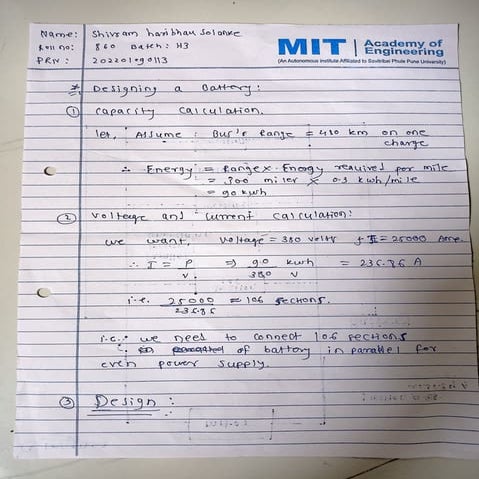 Name: Shivram haribhau Solanke
Roll no: 860 Batch: H3
PRN: 202201090113
MIT | Academy of Engineering
(An Autonomous Institute Affiliated to Savitribai Phule Pune University)
* Designing a Battery:
① Capacity Calculation.
let, Assume: Bus's Range = 480 km on one
charge
∴ Energy = Range x Energy required per mile
= 300 miles x 0.3 kwh/mile
= 90 kwh
② Voltage and Current Calculation:
we want, Voltage = 380 volts & I = 25000 Amp.
∴ I = P/V ⇒ 90/380 kwh/V = 236.86 A
i.e. 25000/236.85 = 106 sections.
i.e. we need to connect 106 sections
of battery in parallel for
even power supply.
③ Design: